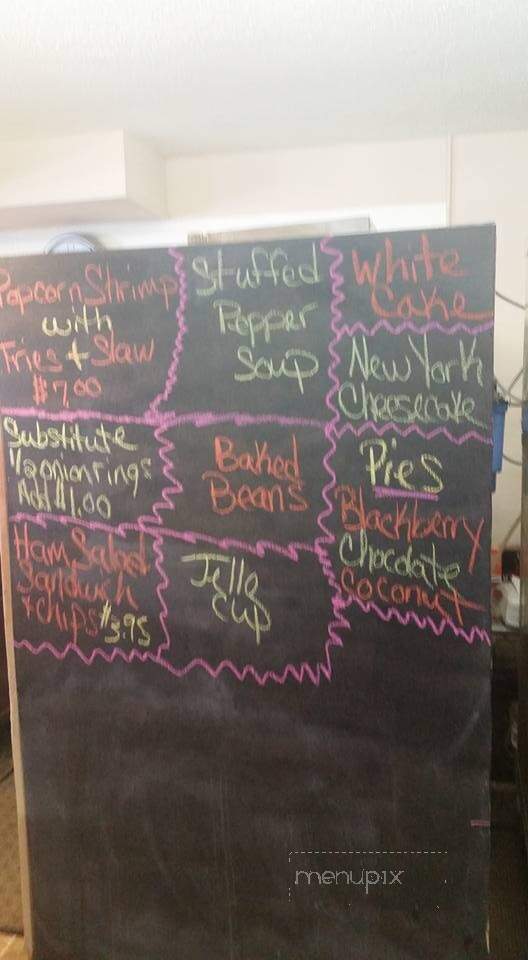 Popcorn Shrimp
with
Fries + Slaw
$7.00
Substitute
1/2 onion rings
Add $1.00
Ham Salad
Sandwich
+ chips $3.95
Stuffed
Pepper
Soup
Baked
Beans
Jello
Cup
White
Cake
New York
Cheesecake
Pies
Blackberry
Chocolate
Coconut
menupix